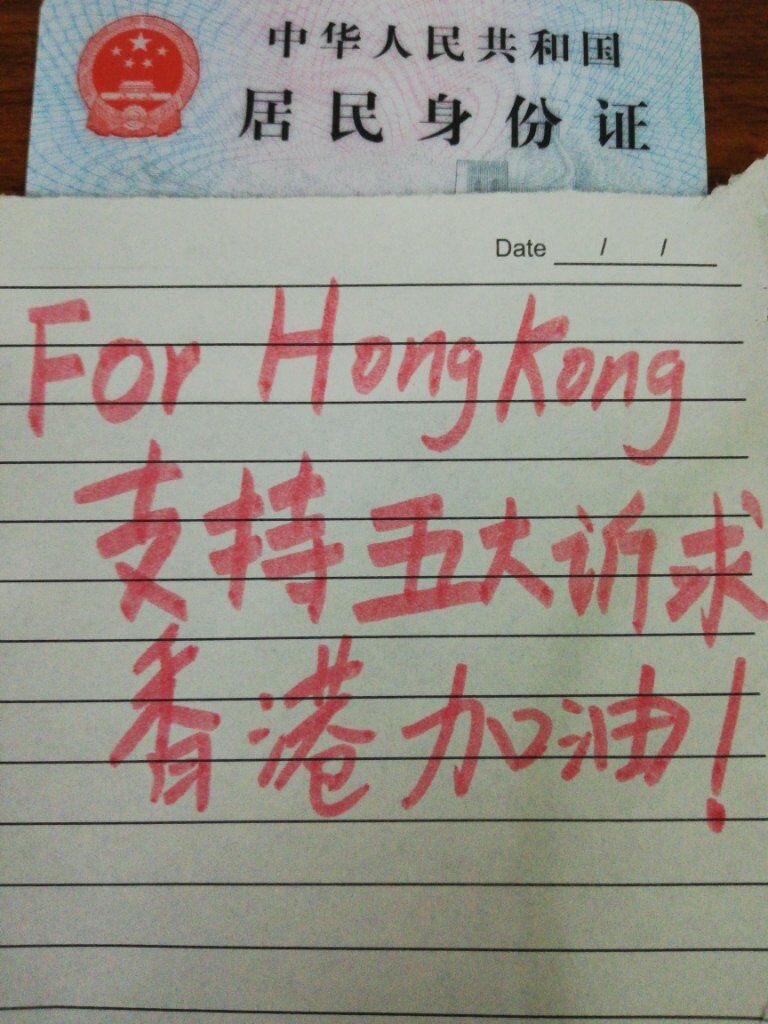 中华人民共和国
居民身份证
Date / /
For Hong Kong
支持五大诉求
香港加油!